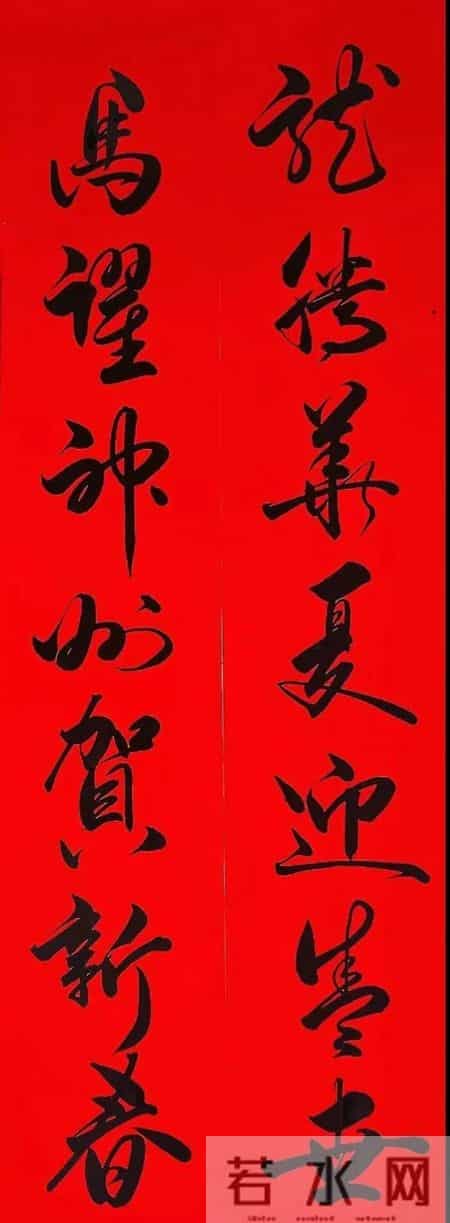 龍騰華夏迎盛世
馬躍神州賀新春
若水网